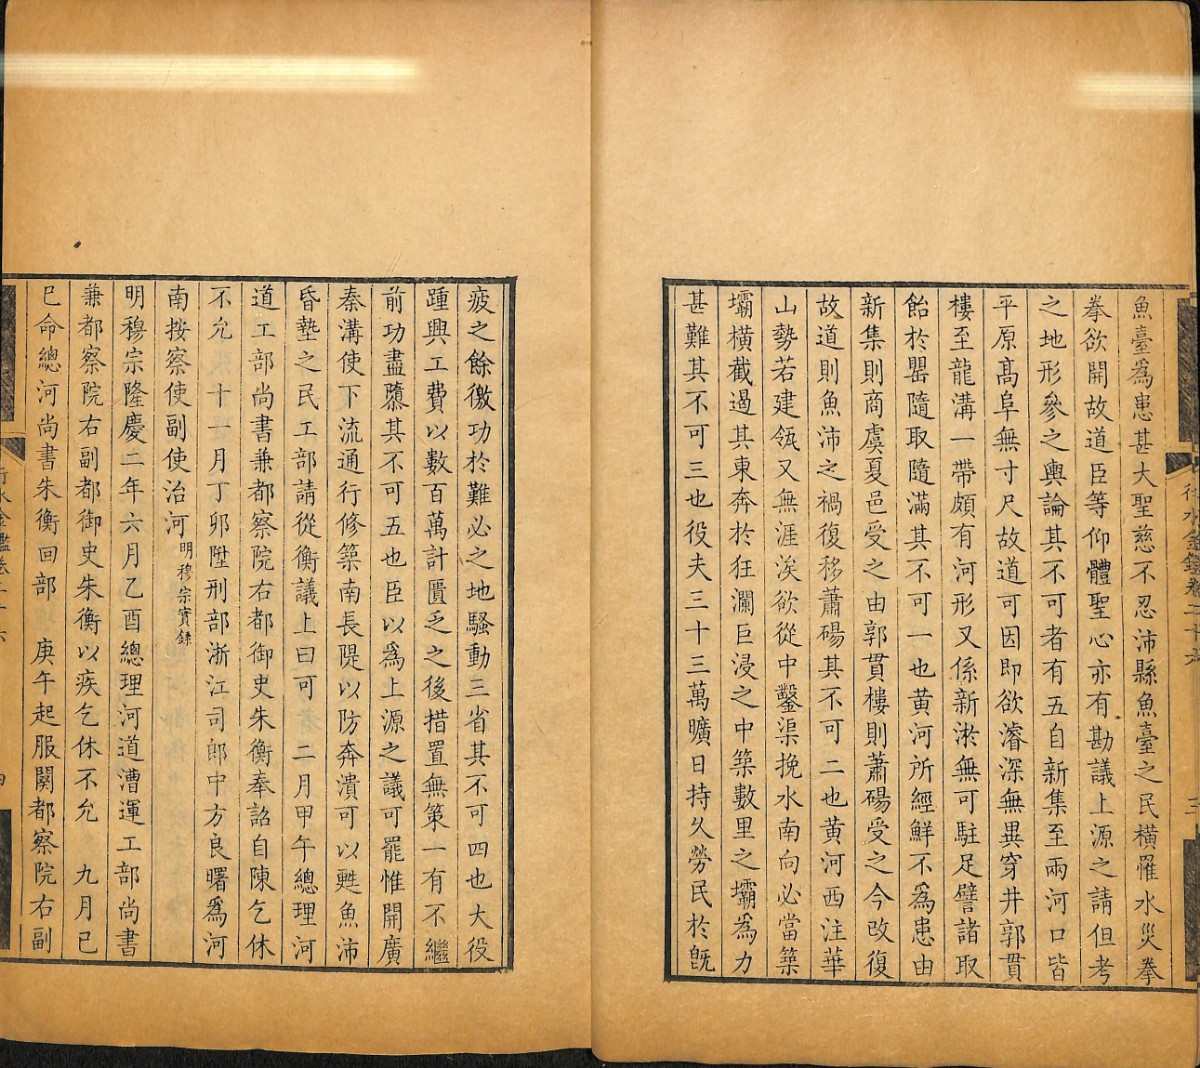 魚臺爲患甚大聖慈不忍沛縣魚臺之民橫罹水災拳
拳欲開故道臣等仰體聖心亦有勘議上源之請但考
之地形參之輿論其不可者有五自新集至兩河口皆
平原高阜無寸尺故道可因即欲濬深無異穿井郭貫
樓至龍溝一帶頗有河形又係新淤無可駐足譬諸取
飴於罌隨取隨滿其不可一也黄河所經鮮不爲患由
新集則商虞夏邑受之由郭貫樓則蕭碭受之今改復
故道則魚沛之禍復移蕭碭其不可二也黄河西注華
山勢若建瓴又無涯涘欲從中鑿渠挽水南向必當築
壩橫截遏其東奔於狂瀾巨浸之中築數里之壩爲力
甚難其不可三也役夫三十三萬曠日持久勞民於旣
疲之餘徼功於難必之地騷動三省其不可四也大役
踵興工費以數百萬計匱乏之後措置無策一有不繼
前功盡隳其不可五也臣以爲上源之議可罷惟開廣
秦溝使下流通行修築南長隄以防奔潰可以甦魚沛
昏墊之民工部請從衡議上曰可 二月甲午總理河
道工部尚書兼都察院右都御史朱衡奉詔自陳乞休
不允 十一月丁卯陞刑部浙江司郎中方良曙爲河
南按察使副使治河明穆宗實錄
明穆宗隆慶二年六月乙酉總理河道漕運工部尚書
兼都察院右副都御史朱衡以疾乞休不允 九月己
巳命總河尚書朱衡回部 庚午起服闋都察院右副
行水金鑑卷二十六
四
行水金鑑卷二十六
三